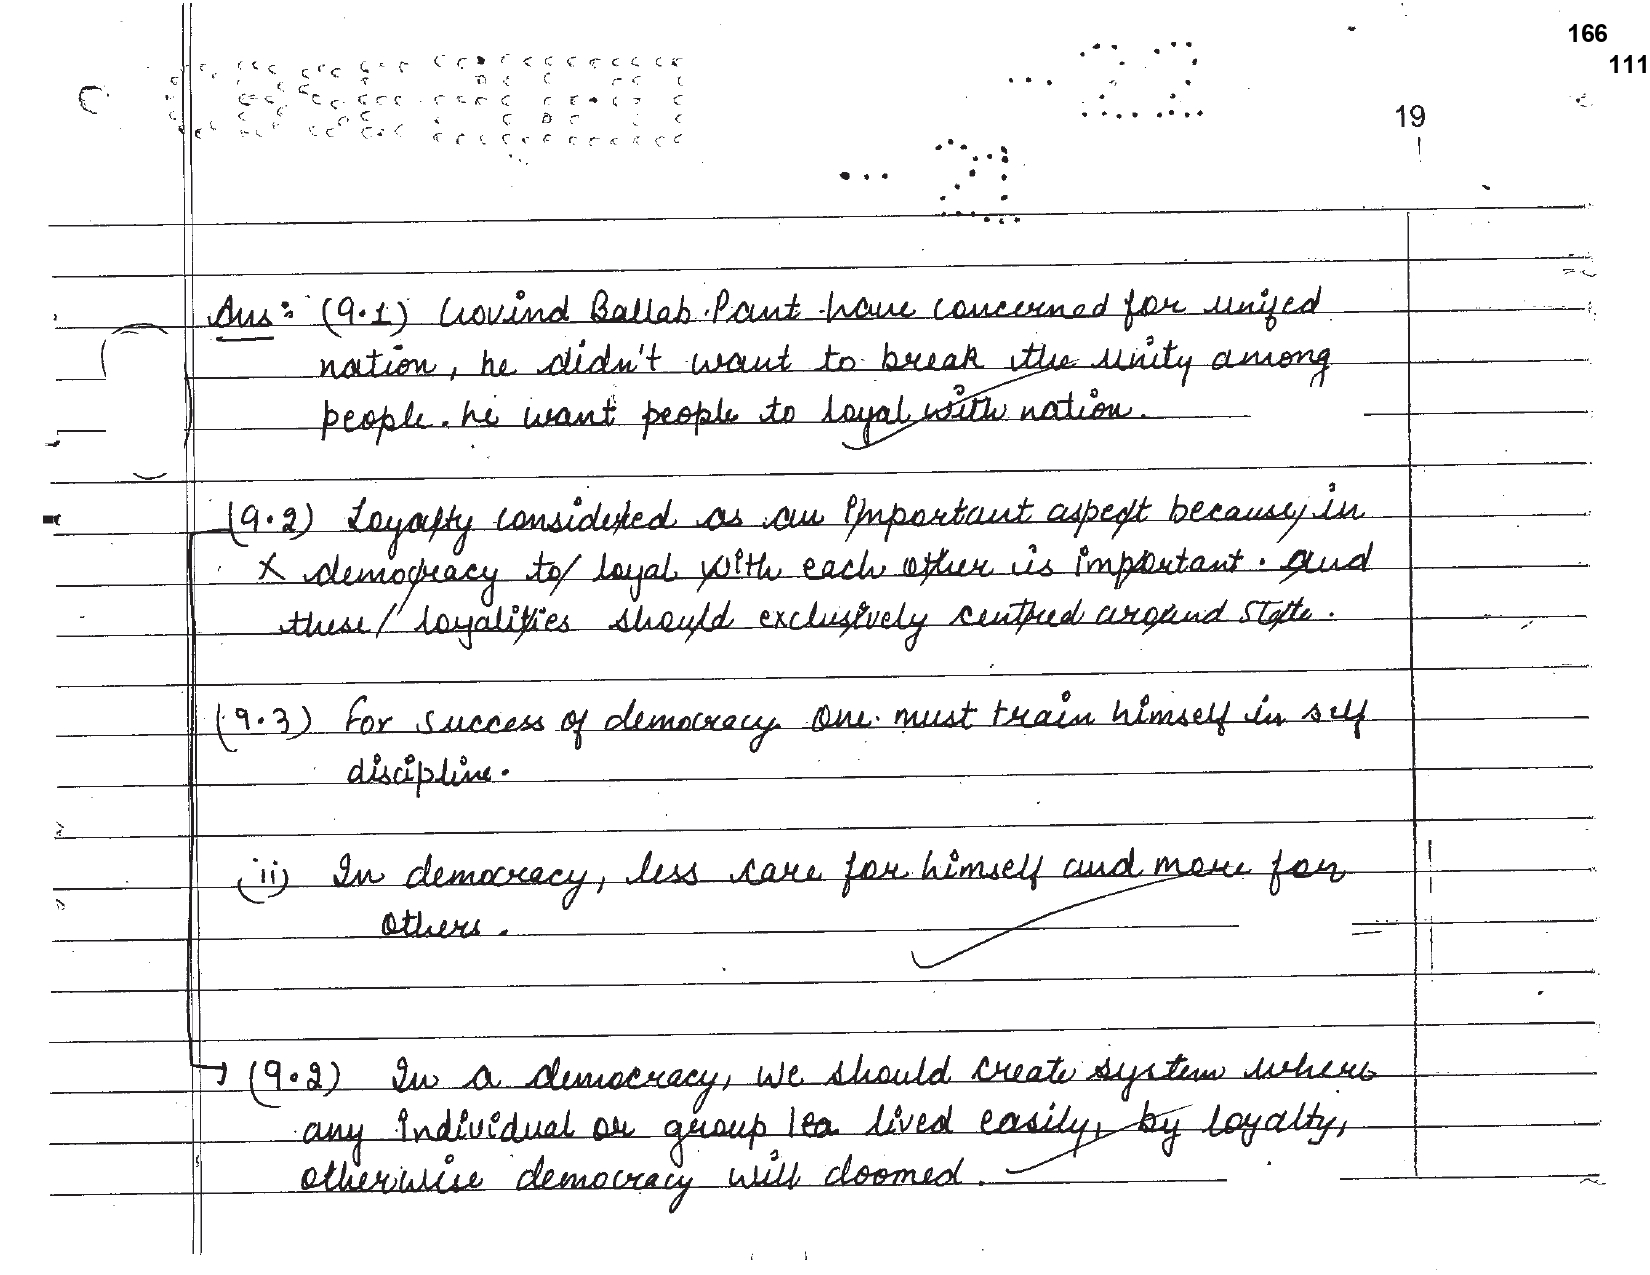 166
111
19
Ans: (9.1) Govind Ballab Pant have concerned for unifed
nation, he didn't want to break the unity among
people. he want people to loyal with nation.
(9.2) Loyalty considered as an important aspect because, in
democracy to loyal with each other is important. and
these loyalities should exclusively centred around state.
(9.3) For success of democracy one must train himself in self
discipline.
(ii) In democracy, less care for himself and more for
others.
(9.2) In a democracy, we should create system where
any individual or group lived easily, by loyalty,
otherwise democracy will doomed.